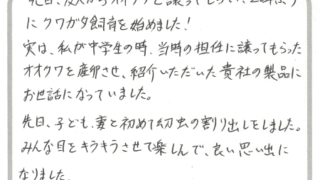 にクワガタ飼育を始めました!
実は、私が中学生の時、当時の担任に譲ってもらった
オオクワを産卵させ、紹介いただいた貴社の製品に
お世話になっていました。
先日、子ども、妻と初めて幼虫の割り出しをしました。
みんな目をキラキラさせて楽しんで、良い思い出に
なりました。